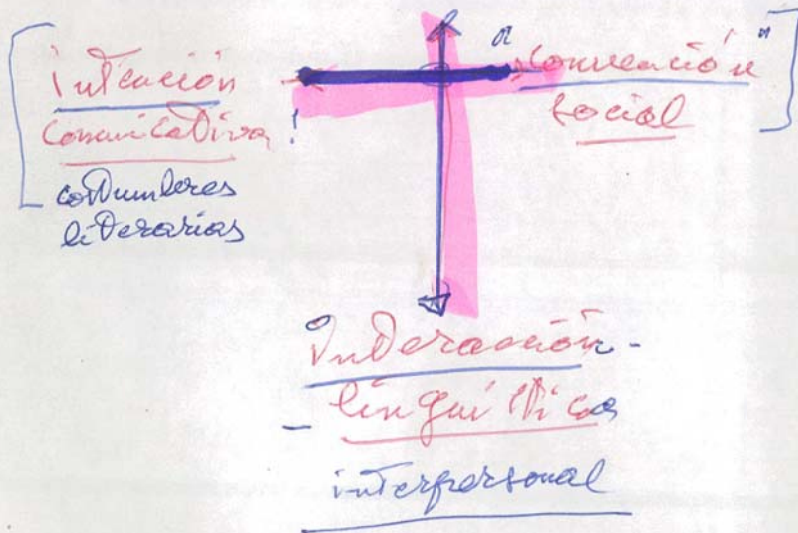 intención
comunicativa
costumbres
literarias
convención
social
Interacción -
- lingüística
interpersonal